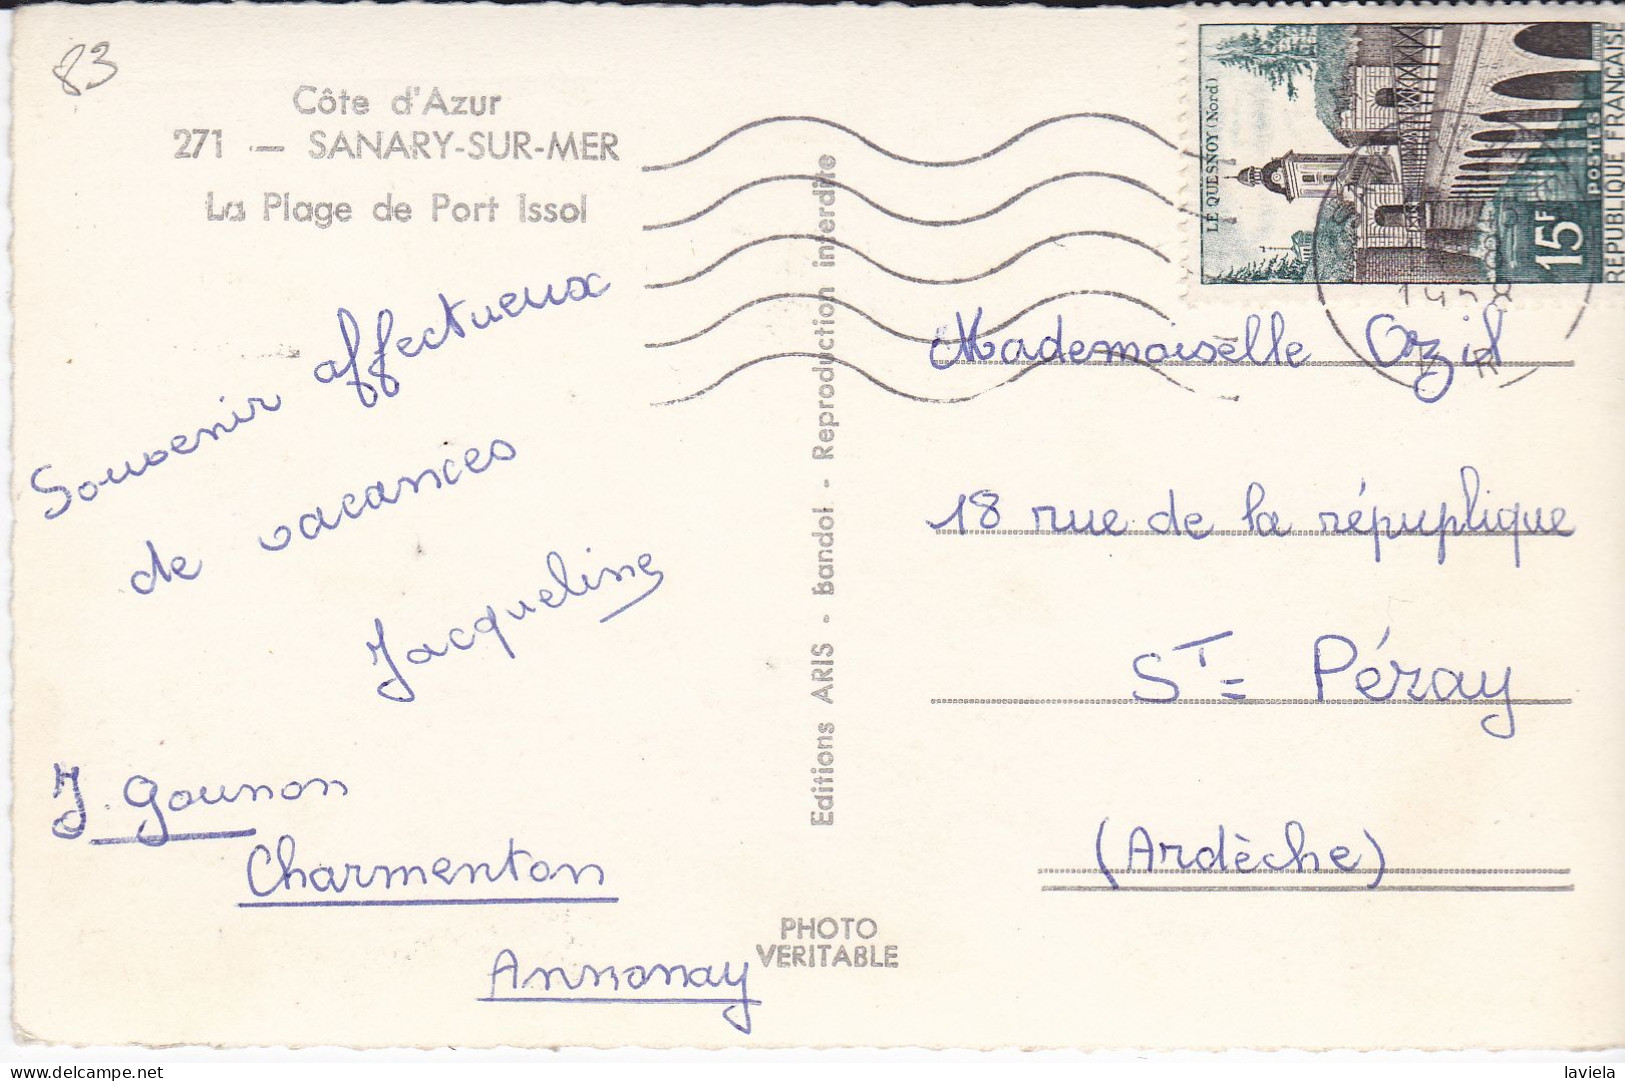 83
Côte d'Azur
271 — SANARY-SUR-MER
La Plage de Port Issol
Souvenir affectueux
de vacances
Jacqueline
J. Gounon
Charmenton
Annonay
Editions ARIS - Bandol - Reproduction interdite
PHOTO
VERITABLE
LE QUESNOY (Nord)
15F
POSTES
REPUBLIQUE FRANÇAISE
Mademoiselle Ozil
18 rue de la répuplique
ST Péray
(Ardèche)
delcampe.net
laviela